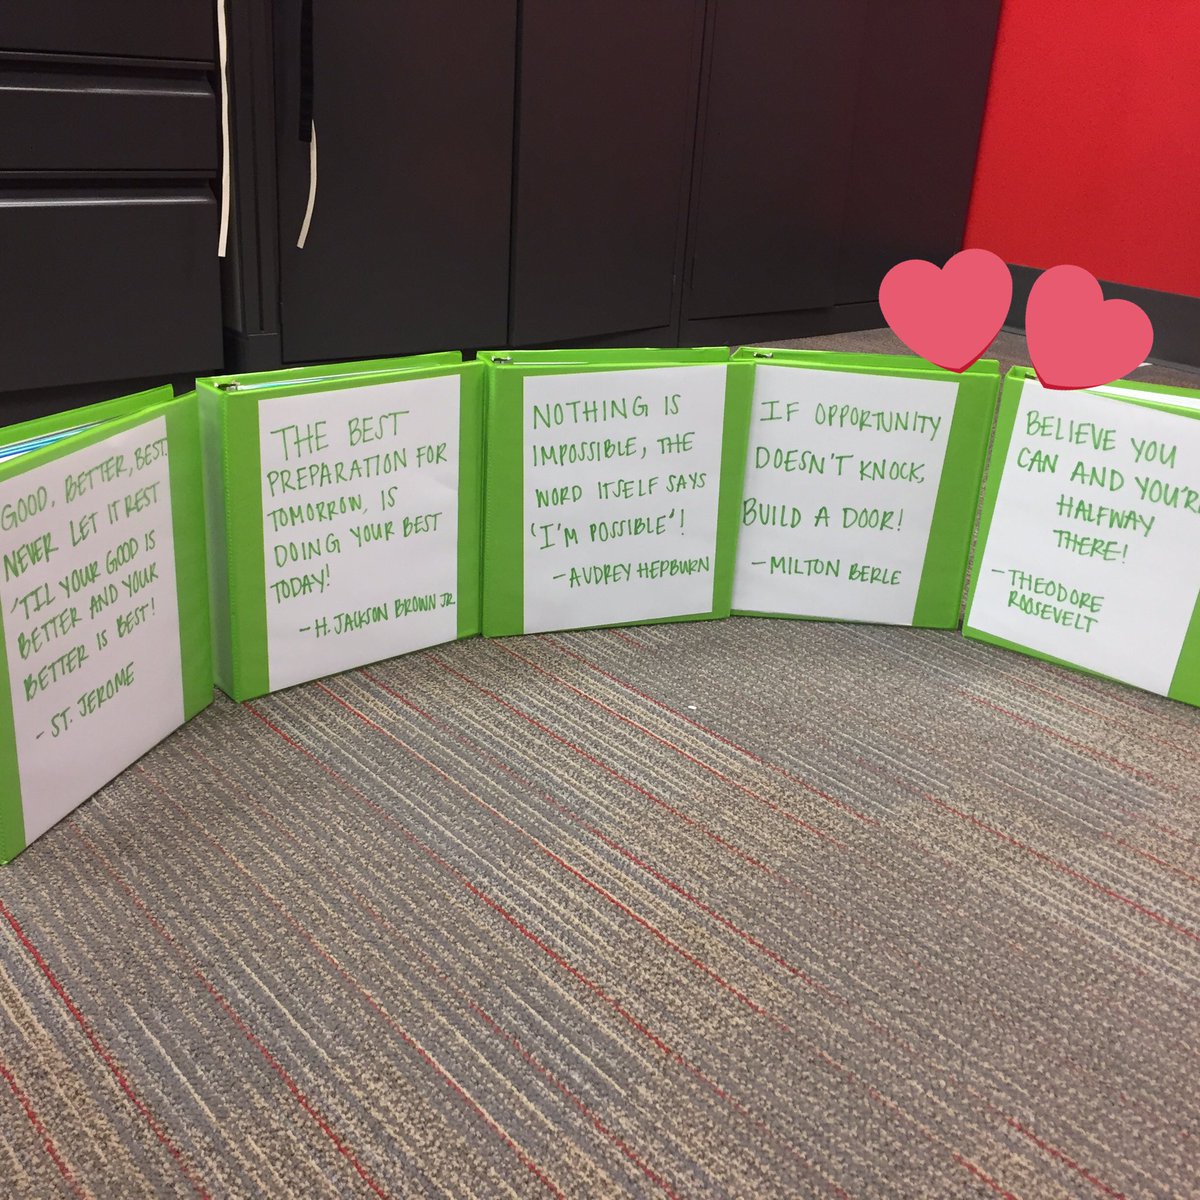 GOOD, BETTER, BEST.
NEVER LET IT REST
'TIL YOUR GOOD IS
BETTER AND YOUR
BETTER IS BEST!
- ST. JEROME
THE BEST
PREPARATION FOR
TOMORROW, IS
DOING YOUR BEST
TODAY!
- H. JACKSON BROWN JR.
NOTHING IS
IMPOSSIBLE, THE
WORD ITSELF SAYS
'I'M POSSIBLE'!
- AUDREY HEPBURN
IF OPPORTUNITY
DOESN'T KNOCK,
BUILD A DOOR!
- MILTON BERLE
BELIEVE YOU
CAN AND YOU'R
HALFWAY
THERE!
- THEODORE
ROOSEVELT